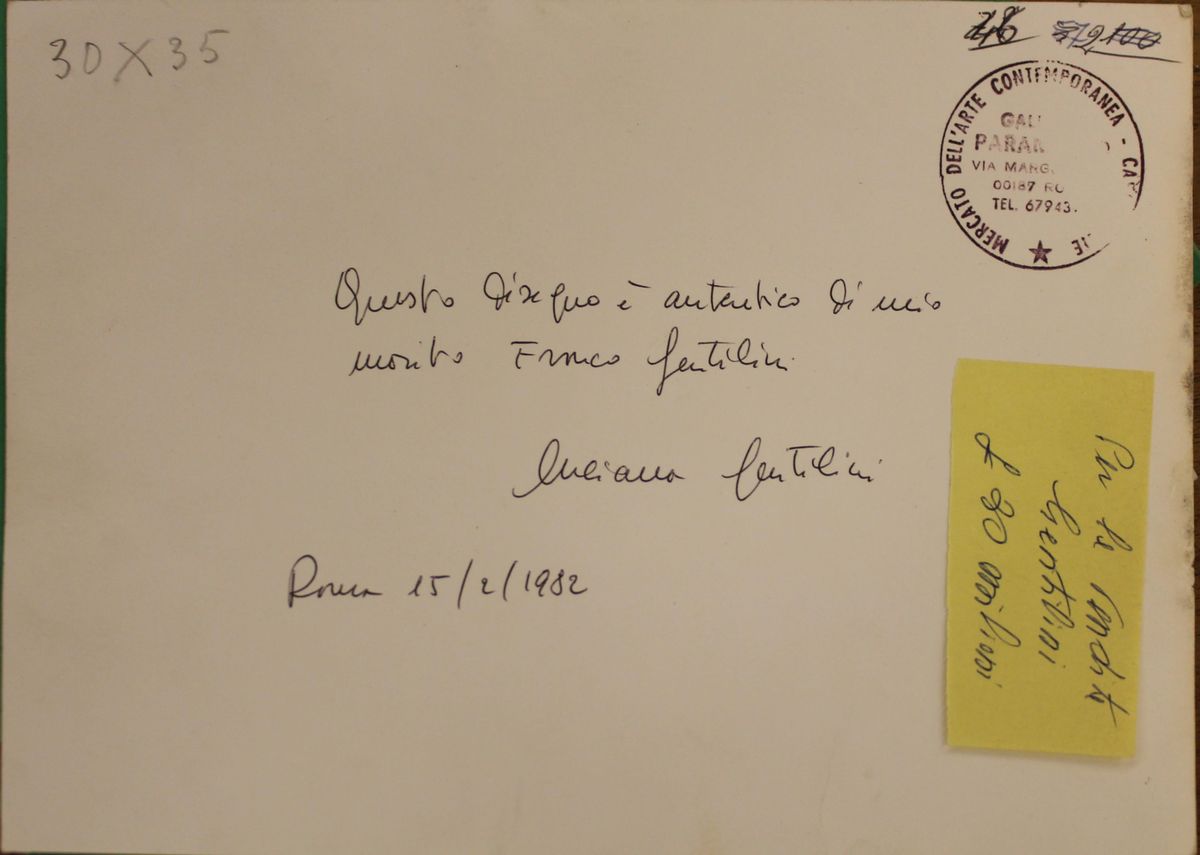 30 X 35
MERCATO DELL'ARTE CONTEMPORANEA - CA
GAL
PARA
VIA MARG
00187 RO
TEL. 67943.
Questo disegno è autentico di mio
marito Franco Gentilini
Luciana Gentilini
Roma 15/2/1982
Per la
Gentilini
£ 20 milioni